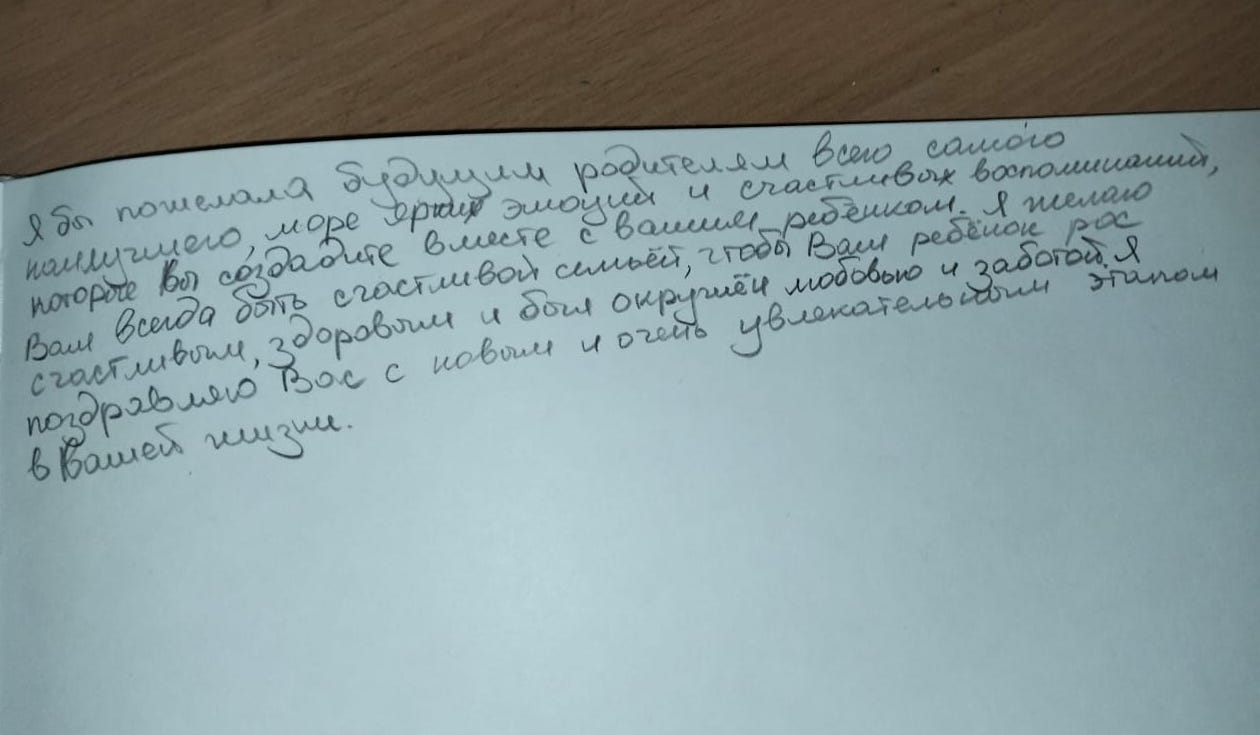 Я бы пожелала будущим родителям всего самого
наилучшего, море ярких эмоций и счастливых воспоминаний,
которые Вы создадите вместе с вашим ребёнком. Я желаю
Вам всегда быть счастливой семьёй, чтобы Ваш ребёнок рос
счастливым, здоровым и был окружён любовью и заботой. Я
поздравляю Вас с новым и очень увлекательным этапом
в Вашей жизни.